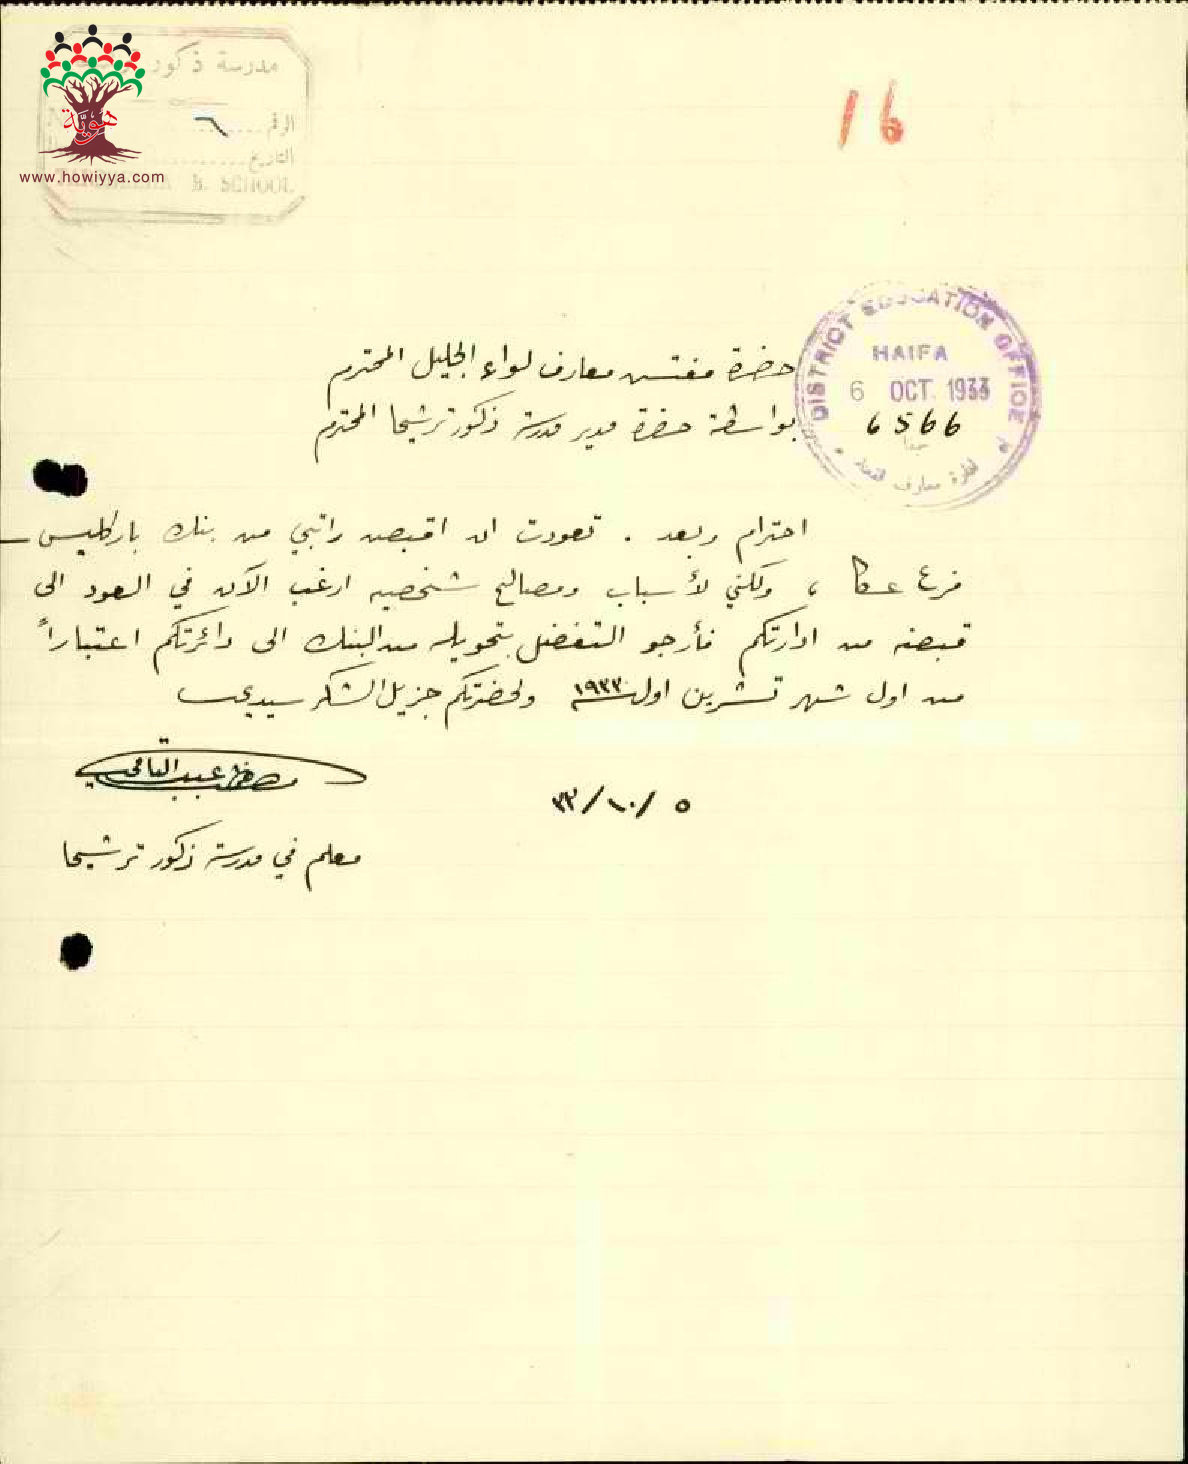 مدرسة ذكور
الرقم ٦
التاريخ
B. SCHOOL
هوية
www.howiyya.com
16
DISTRICT EDUCATION OFFICE
HAIFA
6 OCT. 1933
6566
حضرة مفتش معارف لواء الجليل المحترم
بواسطة حضرة مدير مدرسة ذكور ترشيحا المحترم
احترام وبعد . تعودت ان اقبض راتبي من بنك باركليس
فرع عكا ، ولكني لأسباب ومصالح شخصيه ارغب الآن في العود الى
قبضه من ادارتكم فأرجو التفضل بتحويله من البنك الى دائرتكم اعتباراً
من اول شهر تشرين اول سنة ١٩٣٣ ولحضرتكم جزيل الشكر سيدي
٥ / ١٠ / ٣٣
معلم في مدرسة ذكور ترشيحا